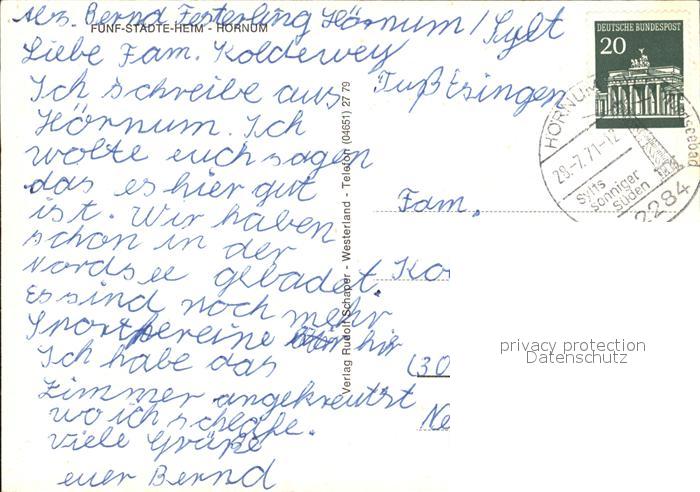 Abs. Bernd Festerling Hörnum / Sylt
FÜNF-STÄDTE-HEIM - HÖRNUM
Liebe Fam. Koldewey
Ich schreibe aus
Hörnum. Ich
wolte euch sagen
das es hier gut
ist. Wir haben
schon in der
Nordsee gebadet.
Es sind noch mehr
Sportvereine hir
Ich habe das
Zimmer angekreutzt
wo ich schlafe.
Viele Grüße
euer Bernd
Verlag Rudolf Schaper - Westerland - Telefon (04651) 27 79
DEUTSCHE BUNDESPOST
20
HÖRNUM
28.-7.71-12
Sylts
sonniger
Süden
2284
Fam.
Ko
(30
Ne
privacy protection
Datenschutz